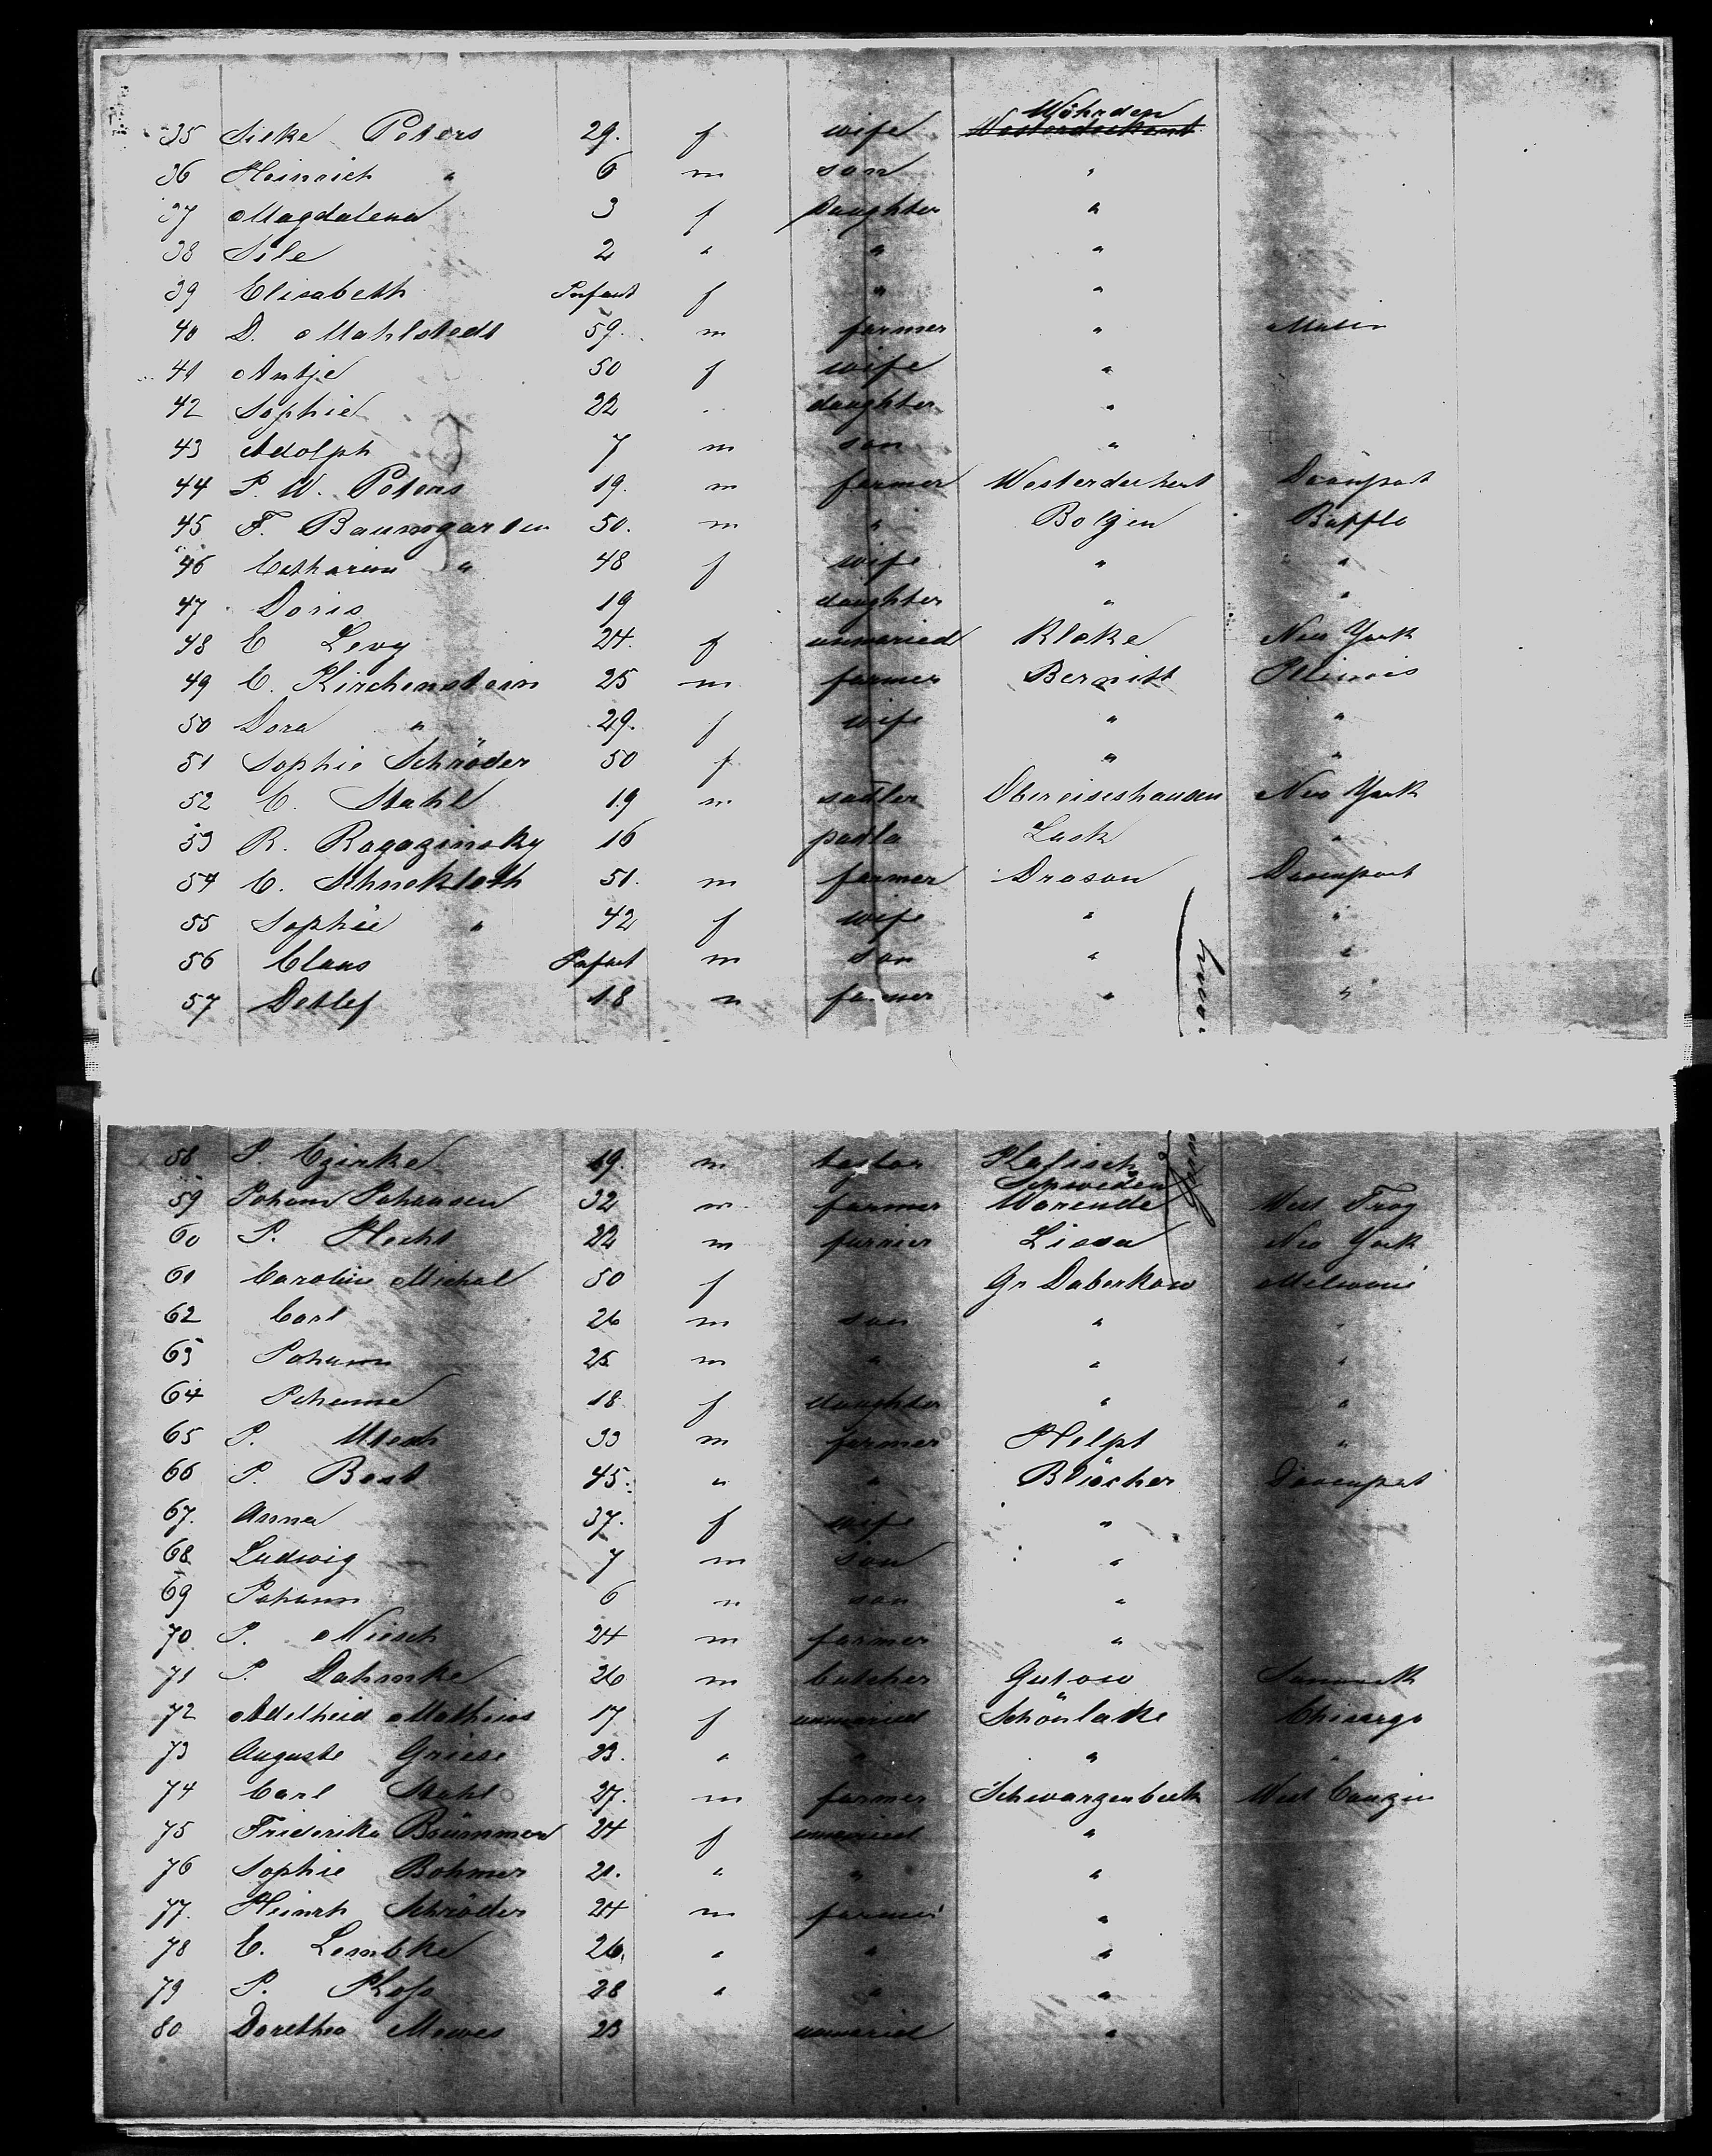 Wöhrden
35 Sieke Peters 29. f wife Westerdeckent
36 Heinrich " 6 m son "
37 Magdalena 3 f Daughter "
38 Sile 2 " " "
39 Elisabeth Infant f " "
40 D. Mahlstedt 59. m farmer "
41 Antje 50 f wife "
42 Sophie 22 " daughter "
43 Adolph 7 m son "
44 P. W. Peters 19. m farmer Westerdeckent Davenport
45 F. Baumgarten 50. m " Bolzin Bufflo
46 Catharina " 48 f wife " "
47 Doris 19 daughter " "
48 C Levy 24. f unmaried Klake New York
49 C. Kirchenstein 25 m farmer Bernitt Illinois
50 Dora " 29. f wife " "
51 Sophie Schröder 50 f " "
52 C. Stahl 19 m sadler Obereiseshausen New York
53 R. Rogozinsky 16 Lask "
54 C. Schnekloth 51. m farmer Drasau Davenport
55 Sophie " 42 f wife " "
56 Claus Infant m son " "
57 Detlef 18 m farmer " "
58 I. Czirke 19. m Kalisch
Schweden
59 Johann Johansen 32 m farmer Warende West Troy
60 P. Hecht 22 m furrier Lissa New York
61 Caroline Michal 50 f Gr Daberkow
62 Carl 26 m son " "
63 Johann 25 m " " "
64 Johanne 18 f daughter " "
65 I. 33 m farmer Helpt "
66 I. Bast 45. " " Blücher Davenport
67. Anna 37. f wife "
68 Ludwig 7 m son "
69 Johann 6 " son "
70 I. Niesch 24 m farmer "
71 I. Dahmke 26 m butcher Gutow
72 Adelheid Mathias 17 f unmaried Schönlake Chicargo
73 Auguste Griese 23. " " " "
74 Carl Stahl 27. m farmer Schwarzenbeck
75 Friderike Brümmer 24 f unmaried "
76 Sophie Bohmer 21. " " "
77. Heinrh Schröder 24 m farmer "
78 C. Lembke 26. " " "
79 I. 28 " " "
80 Dorethea Mewes 23 unmaried "